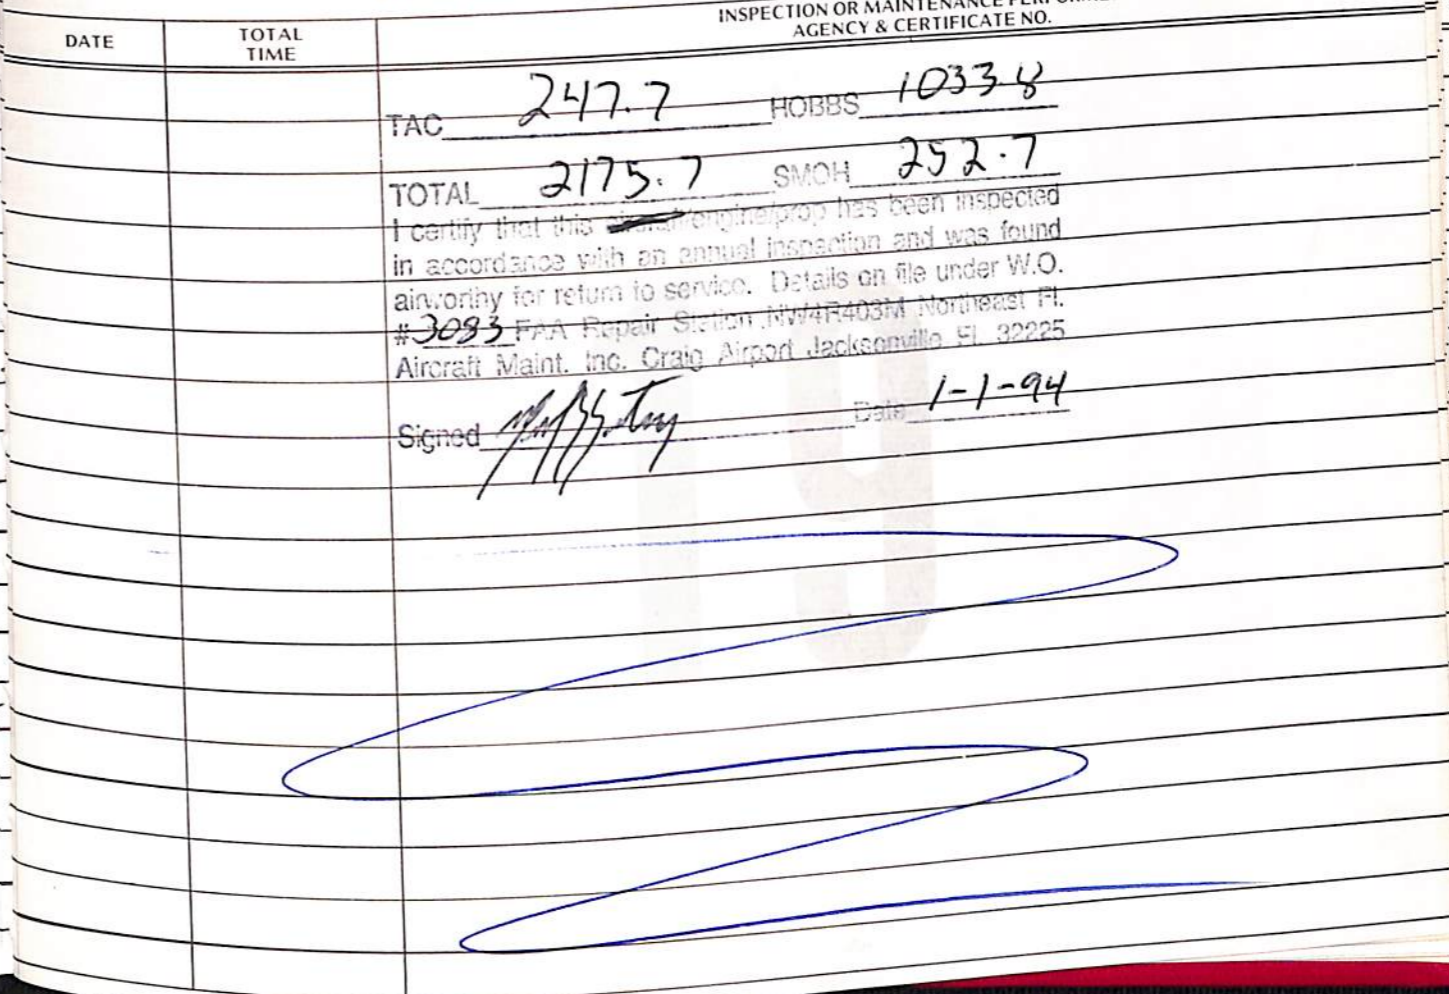 INSPECTION OR MAINTENANCE
DATE TOTAL TIME AGENCY & CERTIFICATE NO.
TAC 247.7 HOBBS 1033.8
TOTAL 2175.7 SMOH 252.7
I certify that this aircraft/engine/prop has been inspected
in accordance with an annual inspection and was found
airworthy for return to service. Details on file under W.O.
#3083 FAA Repair Station NW4R403M Northeast Fl.
Aircraft Maint. Inc. Craig Airport Jacksonville Fl. 32225
Signed Date 1-1-94